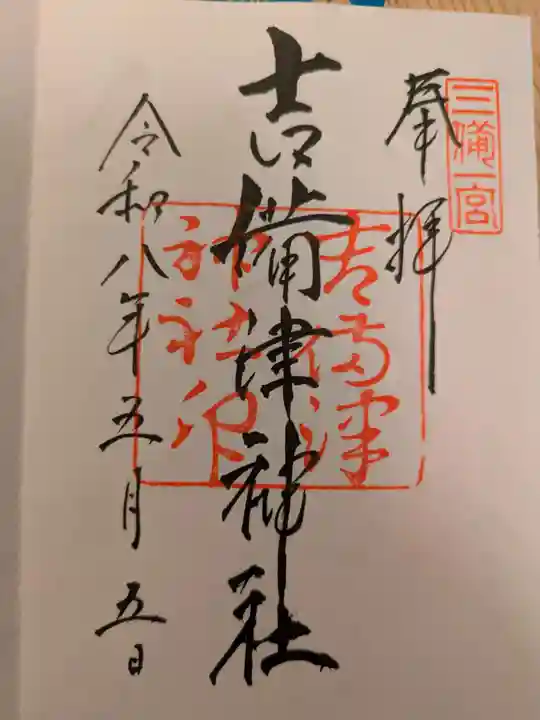 三備一宮
奉拝
吉備津神社
吉備津
神社印
令和八年五月五日